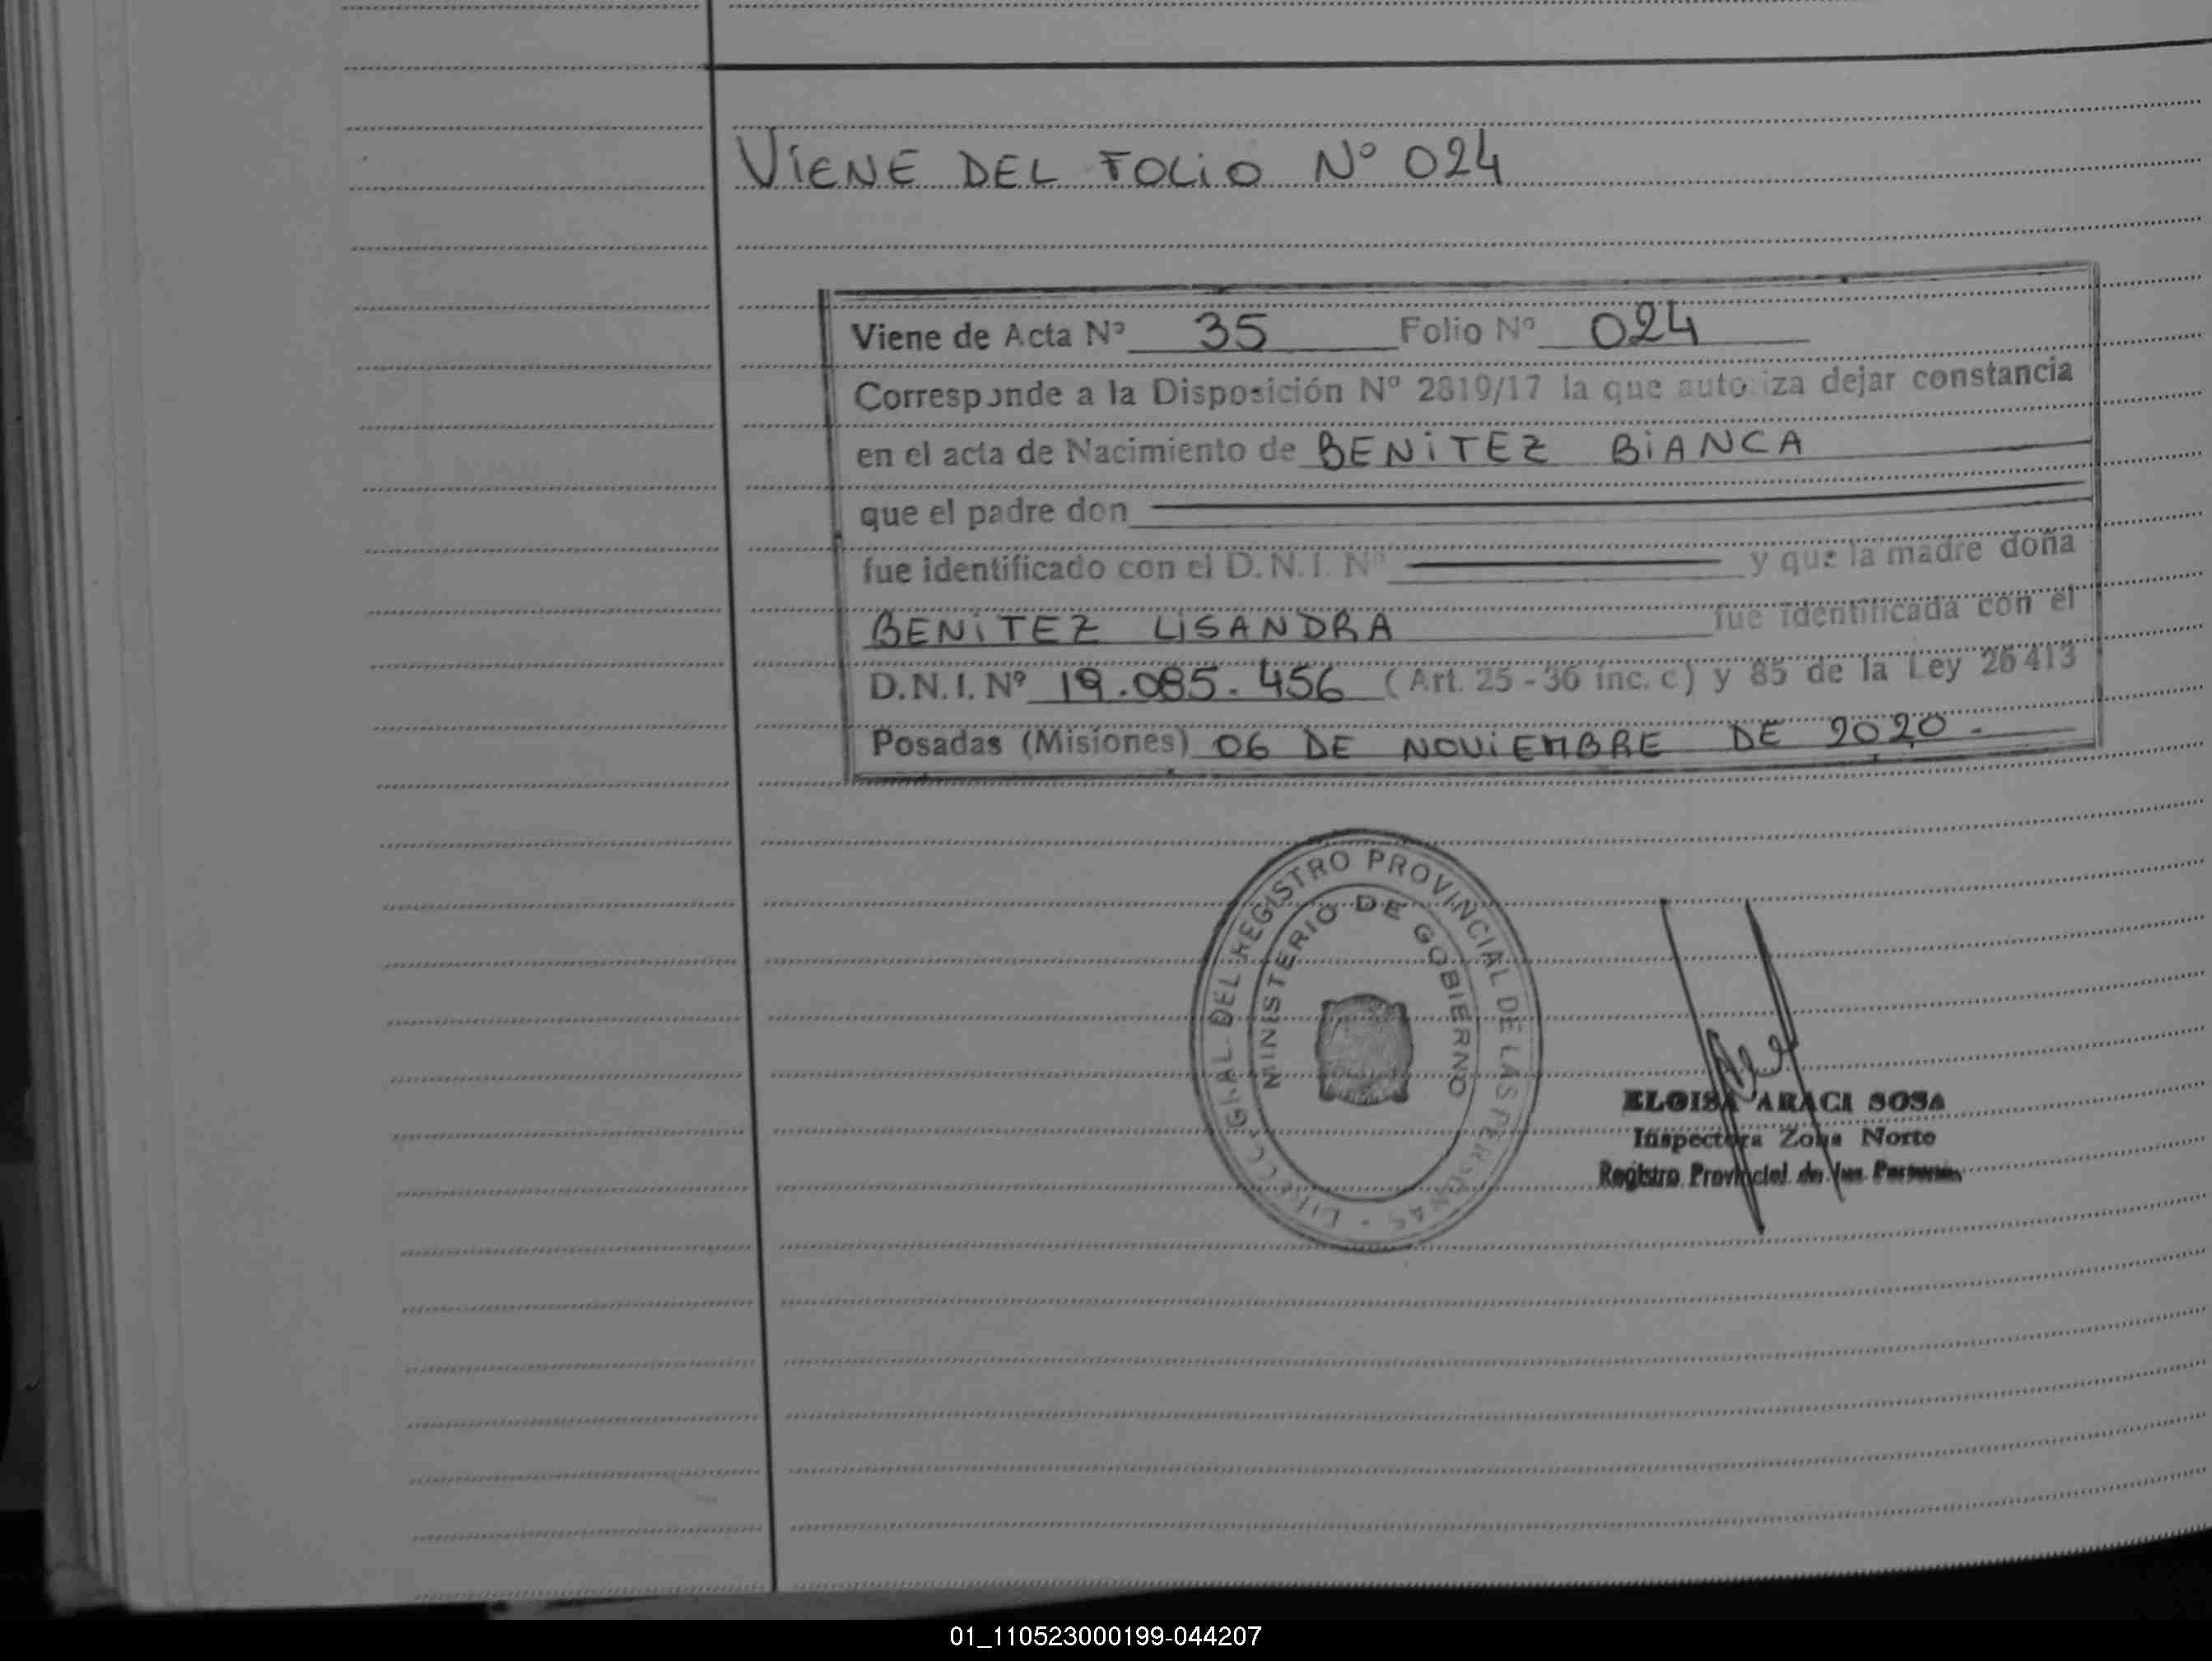 VIENE DEL FOLIO Nº 024
Viene de Acta Nº 35 Folio Nº 024
Corresponde a la Disposición Nº 2819/17 la que autoriza dejar constancia
en el acta de Nacimiento de BENITEZ BIANCA
que el padre don
fue identificado con el D.N.I. Nº y que la madre doña
BENITEZ LISANDRA fue identificada con el
D.N.I. Nº 19.085.456 (Art. 25 - 36 inc. c) y 85 de la Ley 26413
Posadas (Misiones) 06 DE NOVIEMBRE DE 2020.-
DEL REGISTRO PROVINCIAL DE LAS PERSONAS
MINISTERIO DE GOBIERNO
ELOISA ARACI SOSA
Inspectora Zona Norte
Registro Provincial de las Personas
01_110523000199-044207